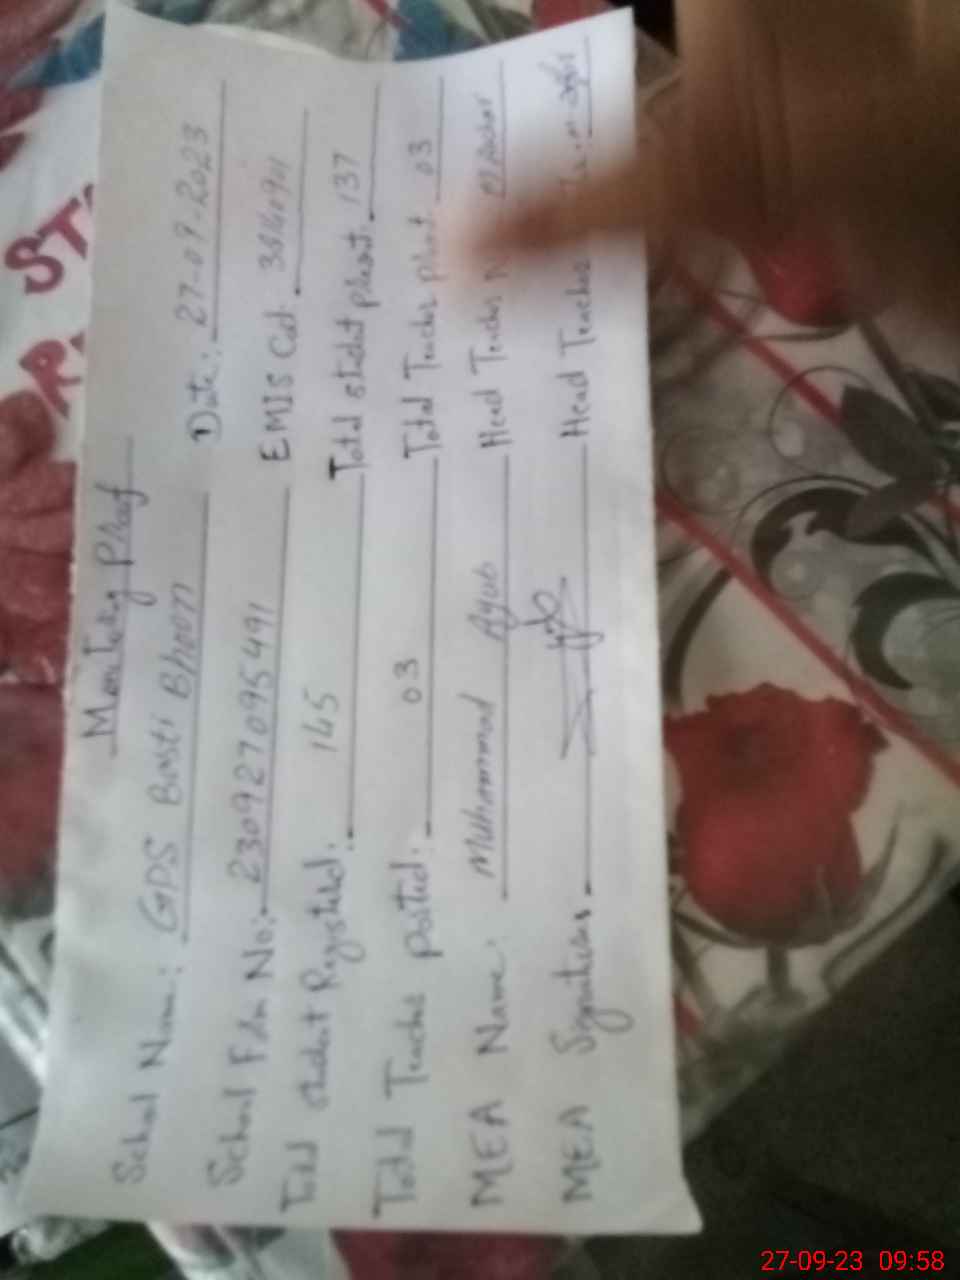 Monitoring Proof
School Name: GPS Basti Bhron Date: 27-09-2023
School F/m No: 230927095491 EMIS Cod:
Total student Registered: 145 Total student present: 137
Total Teache posted: 03 Total Teacher present: 03
MEA Name: Muhammad Ayub Head Teacher
MEA Signatures Head Teacher
27-09-23 09:58